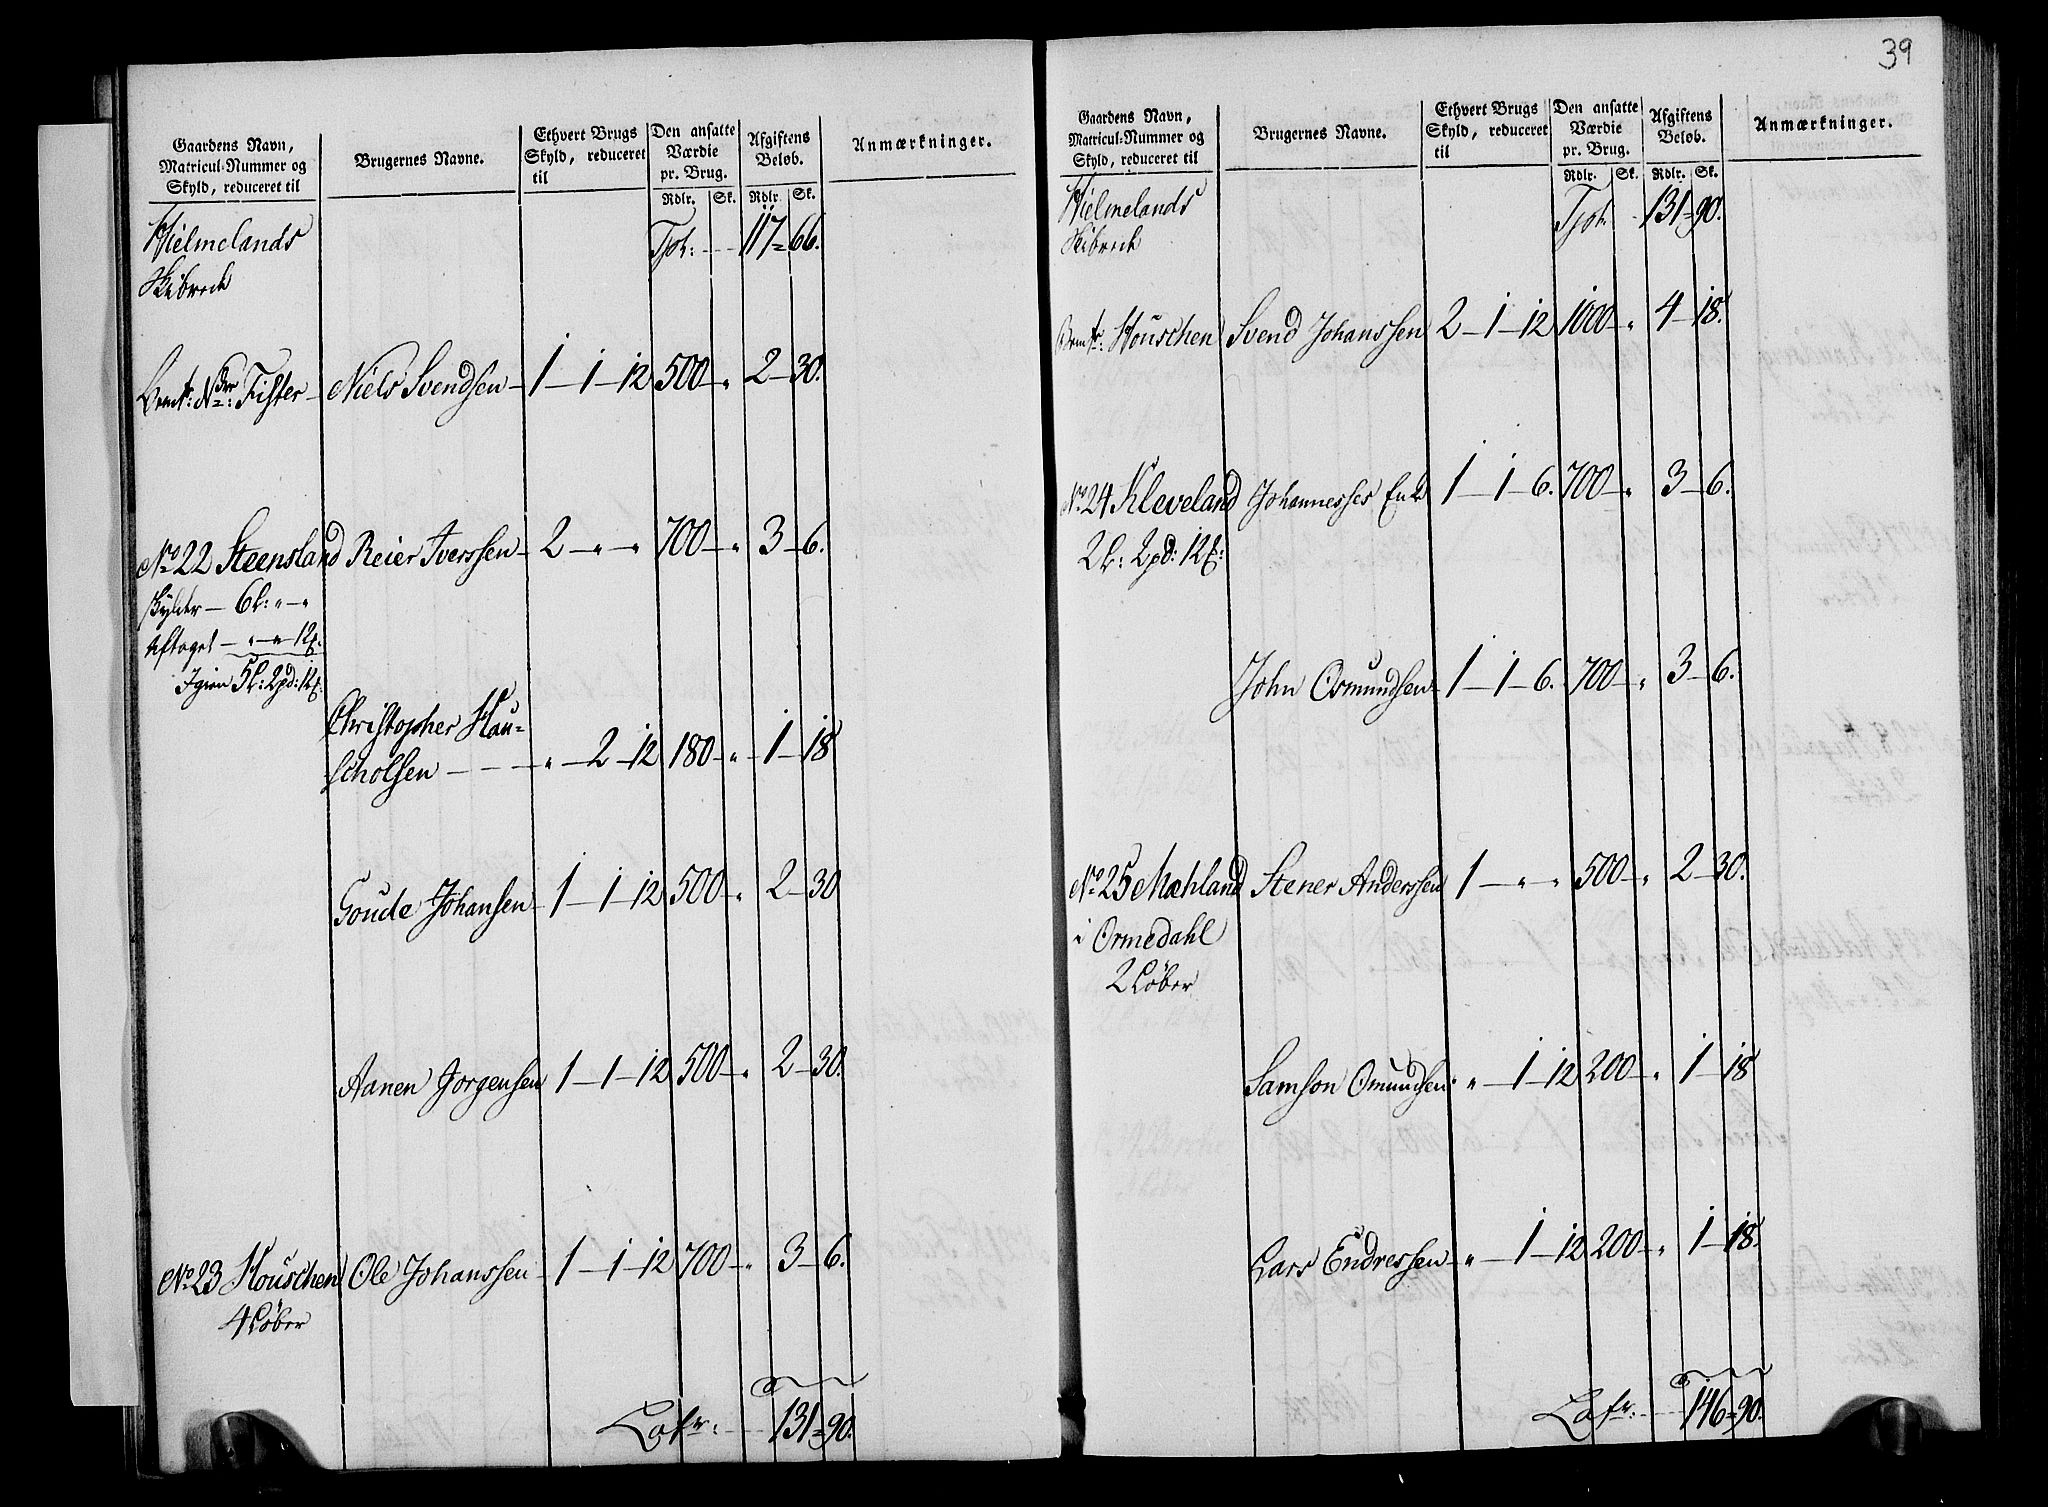 39
Gaardens Navn, Matricul-Nummer og Skyld, reduceret til
Brugernes Navne.
Ethvert Brugs Skyld, reduceret til
Den ansatte Værdie pr. Brug.
Afgiftens Beløb.
Anmærkninger.
Rdlr. Sk. Rdlr. Sk.
Hielmelands Tpt: 117 = 66.
Skibrede
Niels Svendsen 1 — 1 — 12 500 — " 2 — 30.
No 22 Steensland Reier Iverssen 2 — " — " 700 — " 3 — 6.
Skylder — 6 L: " — "
Aftaget — " — " — 12
Igien 5 L: 2 pd: 12
Christopher Hau-
scholsen — — — " — 2 — 12 180 — " 1 — 18
Goude Johansen 1 — 1 — 12 500 — " 2 — 30
Aanen Jorgensen 1 — 1 — 12 500 — " 2 — 30.
No 23 Houschen Ole Johanssen 1 — 1 — 12 700 — " 3 — 6.
4 Löber
Lafr: 131 = 90.
Gaardens Navn, Matricul-Nummer og Skyld, reduceret til
Brugernes Navne.
Ethvert Brugs Skyld, reduceret til
Den ansatte Værdie pr. Brug.
Afgiftens Beløb.
Anmærkninger.
Rdlr. Sk. Rdlr. Sk.
Hielmelands Tpt: 131 = 90.
Skibrede
Houschen Svend Johanssen 2 — 1 — 12 1000 — " 4 — 18.
No 24 Kleveland Johannesses Enke 1 — 1 — 6. 700 — " 3 — 6.
2 L: 2 pd: 12
John Osmundsen 1 — 1 — 6. 700 — " 3 — 6.
No 25 Mæhland Stener Anderssen 1 — " — " 500 — " 2 — 30.
i Ormedahl
2 Löber
Samson Omundsen " — 1 — 12 200 — " 1 — 18
Lars Endressen " — 1 — 12 200 — " 1 — 18.
Lafr: 146 = 90.